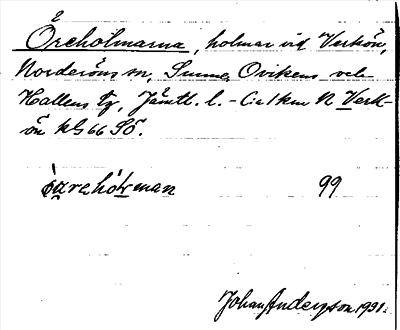 Öreholmarna, holmar vid Verkön,
Norderöns sn, Sunne, Ovikens och
Hallens tg, Jämtl. l. - Ca 1 km N Verk-
ön kbl 66 SÖ.
99
Johan Anderzson 1931.